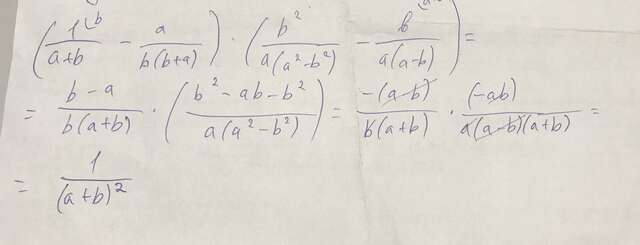 (1/(a+b) ⌊b - a/(b(b+a))) · (b²/(a(a²-b²)) - b/(a(a-b))) =
= (b-a)/(b(a+b)) · ((b²-ab-b²)/(a(a²-b²))) = -(a-b)/(b(a+b)) · (-ab)/(a(a-b)(a+b)) =
= 1/(a+b)²